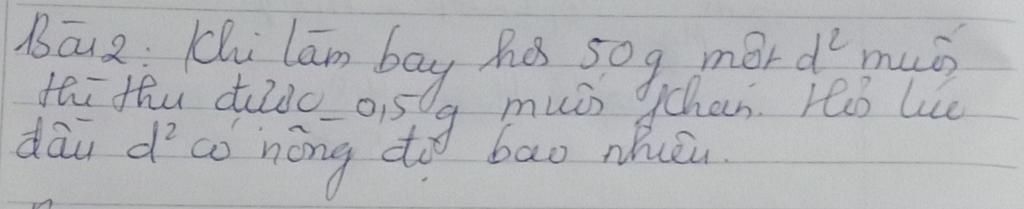 Bài 2: Khi làm bay hơi 50g một d² muối
thì thu được 0,5g muối khan. Hỏi lúc
đầu d² có nồng độ bao nhiêu.